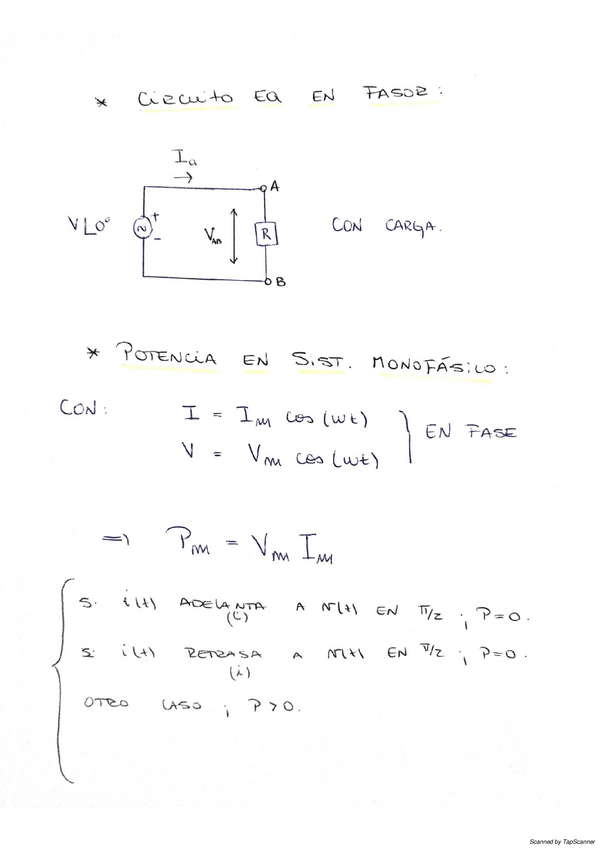 * CIRCUITO EQ EN FASOR:
Ia
→
A
V∟0°
+
~
-
VAB
R
CON CARGA.
B
* POTENCIA EN SIST. MONOFÁSICO:
CON:
I = Im cos(wt)
V = Vm cos(wt)
} EN FASE
=> Pm = Vm Im
Si i(t) ADELANTA A v(t) EN π/2 ; P=0.
(C)
Si i(t) RETRASA A v(t) EN π/2 ; P=0.
(i)
OTRO CASO ; P>0.
Scanned by TapScanner